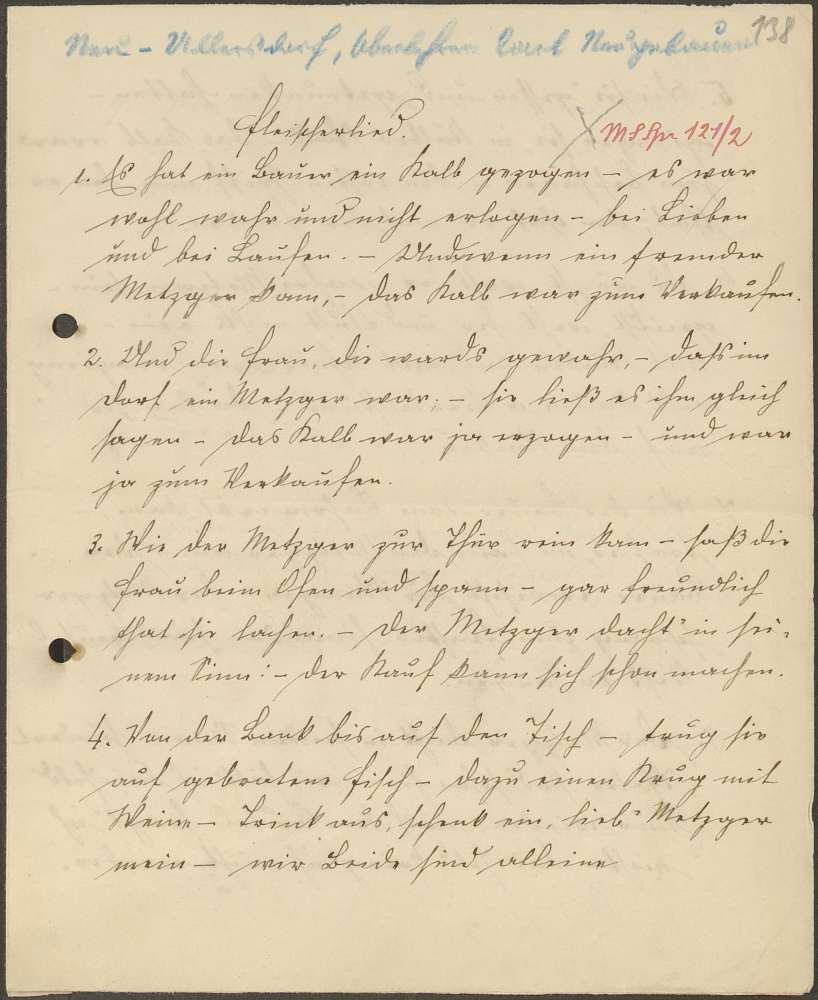 138
Neu-Ullersdorf, Oberlehrer Carl Neugebauer
Fleischerlied.
MSSpr 121/2
1. Es hat ein Bauer ein Kalb gezogen – es war
wohl wahr und nicht erlogen – bei Lieben
und bei Laufen. – Und wenn ein fremder
Metzger kam, – das Kalb war zum Verkaufen.
2. Und die Frau, die wards gewahr, – daß im
Dorf ein Metzger war; – sie ließ es ihm gleich
sagen – das Kalb war ja erzogen – und war
ja zum Verkaufen.
3. Wie der Metzger zur Thür rein kam – saß die
Frau beim Ofen und spann – gar freundlich
that sie lachen. – Der Metzger dacht' in sei-
nem Sinn: – der Kauf kann sich schon machen.
4. Von der Bank bis auf den Tisch – trug sie
auf gebratene Fisch – dazu einen Krug mit
Weine – Trink aus, schenk ein, lieb' Metzger
mein – wir Beide sind alleine